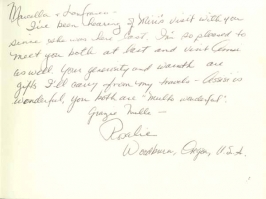 Marcella + Gianfranco -
I've been hearing of Marie's visit with you
since she was here last. I'm so pleased to
meet you both at last and
as well. Your generosity and warmth are
gifts I'll carry from my travels -
wonderful, you both are "multo wonderful".
Grazie mille -
Rosalie
Woodburn, Oregon, U.S.A.